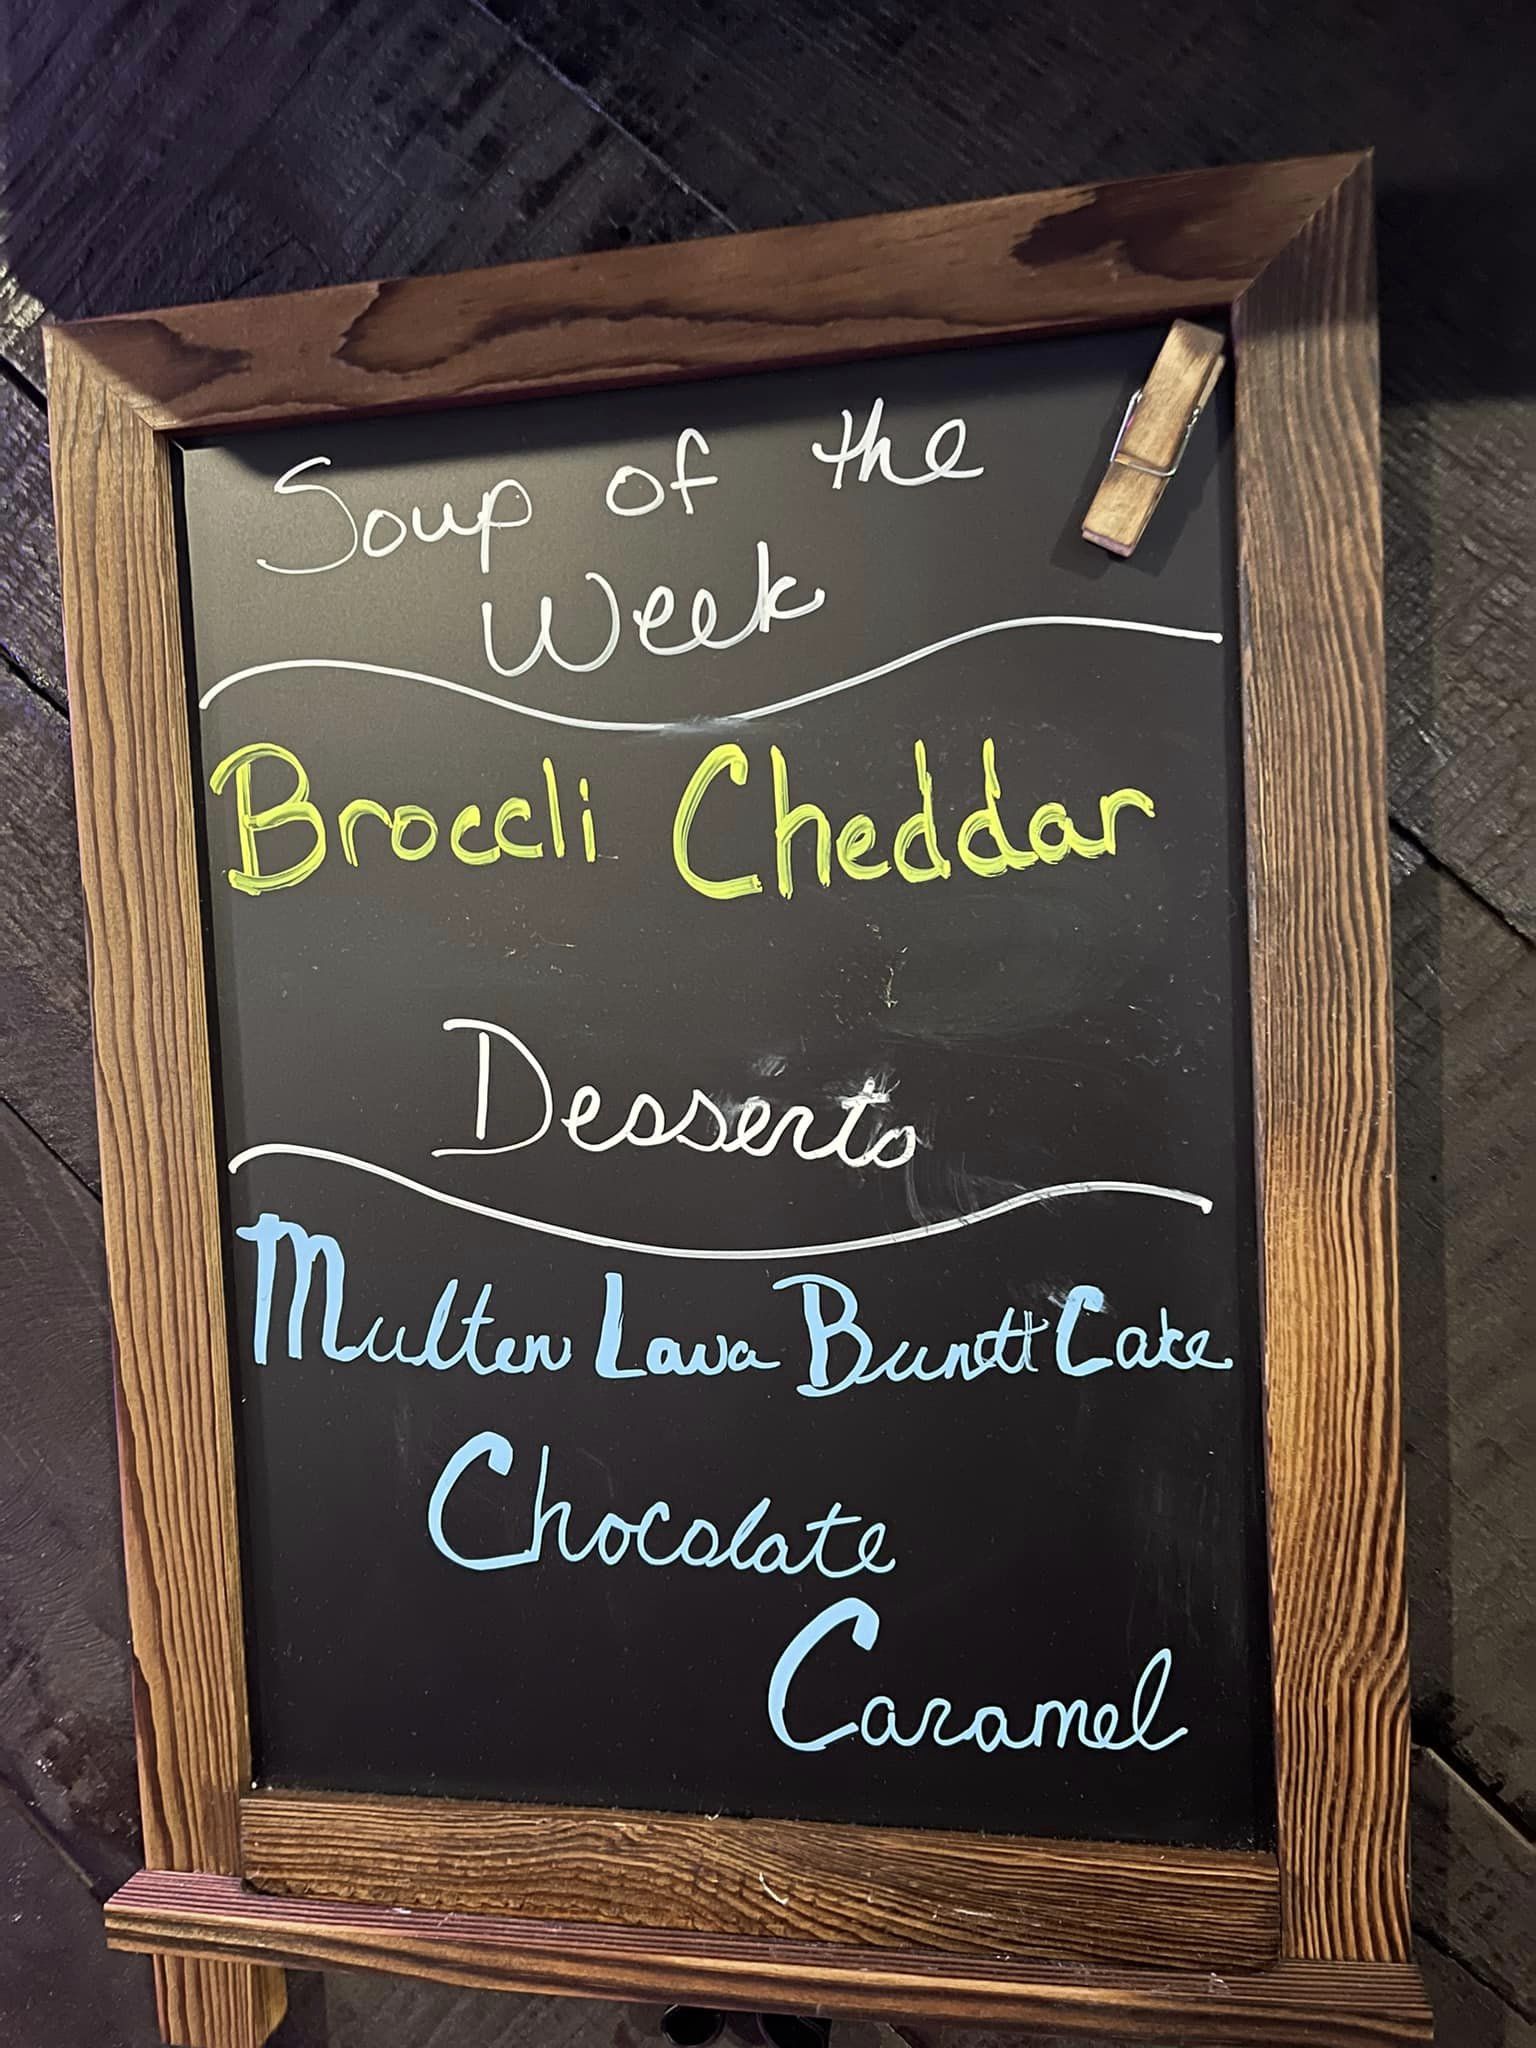 Soup of the
Week
Broccli Cheddar
Desserts
Multen Lava Bundt Cake
Chocolate
Caramel